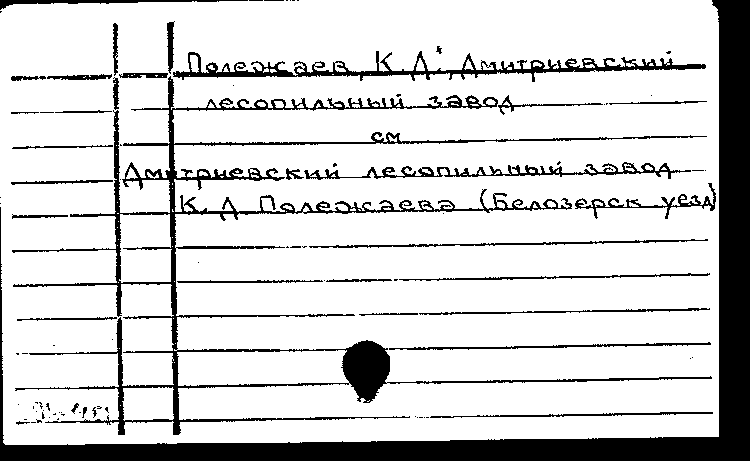 Полежаев, К. Д., Дмитриевский
лесопильный завод
см
Дмитриевский лесопильный завод
К. Д Полежаева (Белозерск уезд)